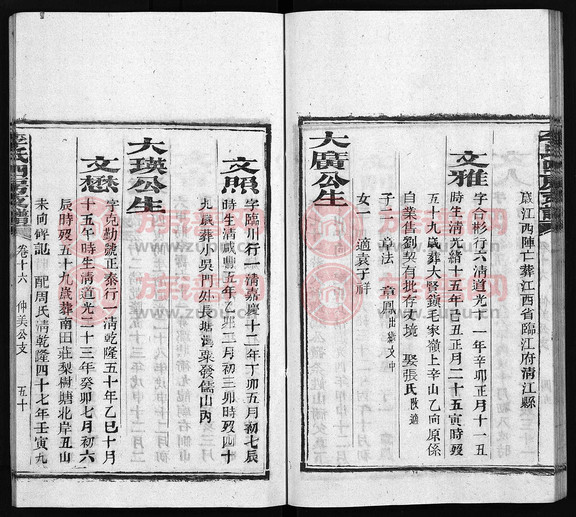 李氏四房支譜
旗江西陣亡葬江西省臨江府清江縣
文雅
字合彬行六清道光十一年辛卯正月十一丑
時生清光緒十五年己丑正月二十五寅時歿
五十九歲葬大賢鎮毛家嶺上辛山乙向原係
自業售劉契有批存文境 娶張氏改適
子二 章法 章鳳出繼文中
女一 適袁子祥
大廣公生
文照
字臨川行一清嘉慶十二年丁卯五月初七辰
時生清咸豐五年乙卯二月初三卯時歿四十
九歲葬小吳門外長塘灣栗發儒山內
大瑛公生
文懋
字克勤號正泰行一清乾隆五十年乙巳十月
十五午時生清道光二十三年癸卯七月初六
辰時歿五十九歲葬南田莊梨樹塘北岸丑山
未向碑記 配周氏清乾隆四十七年壬寅九
李氏四房支譜 卷十六 仲美公支 五十